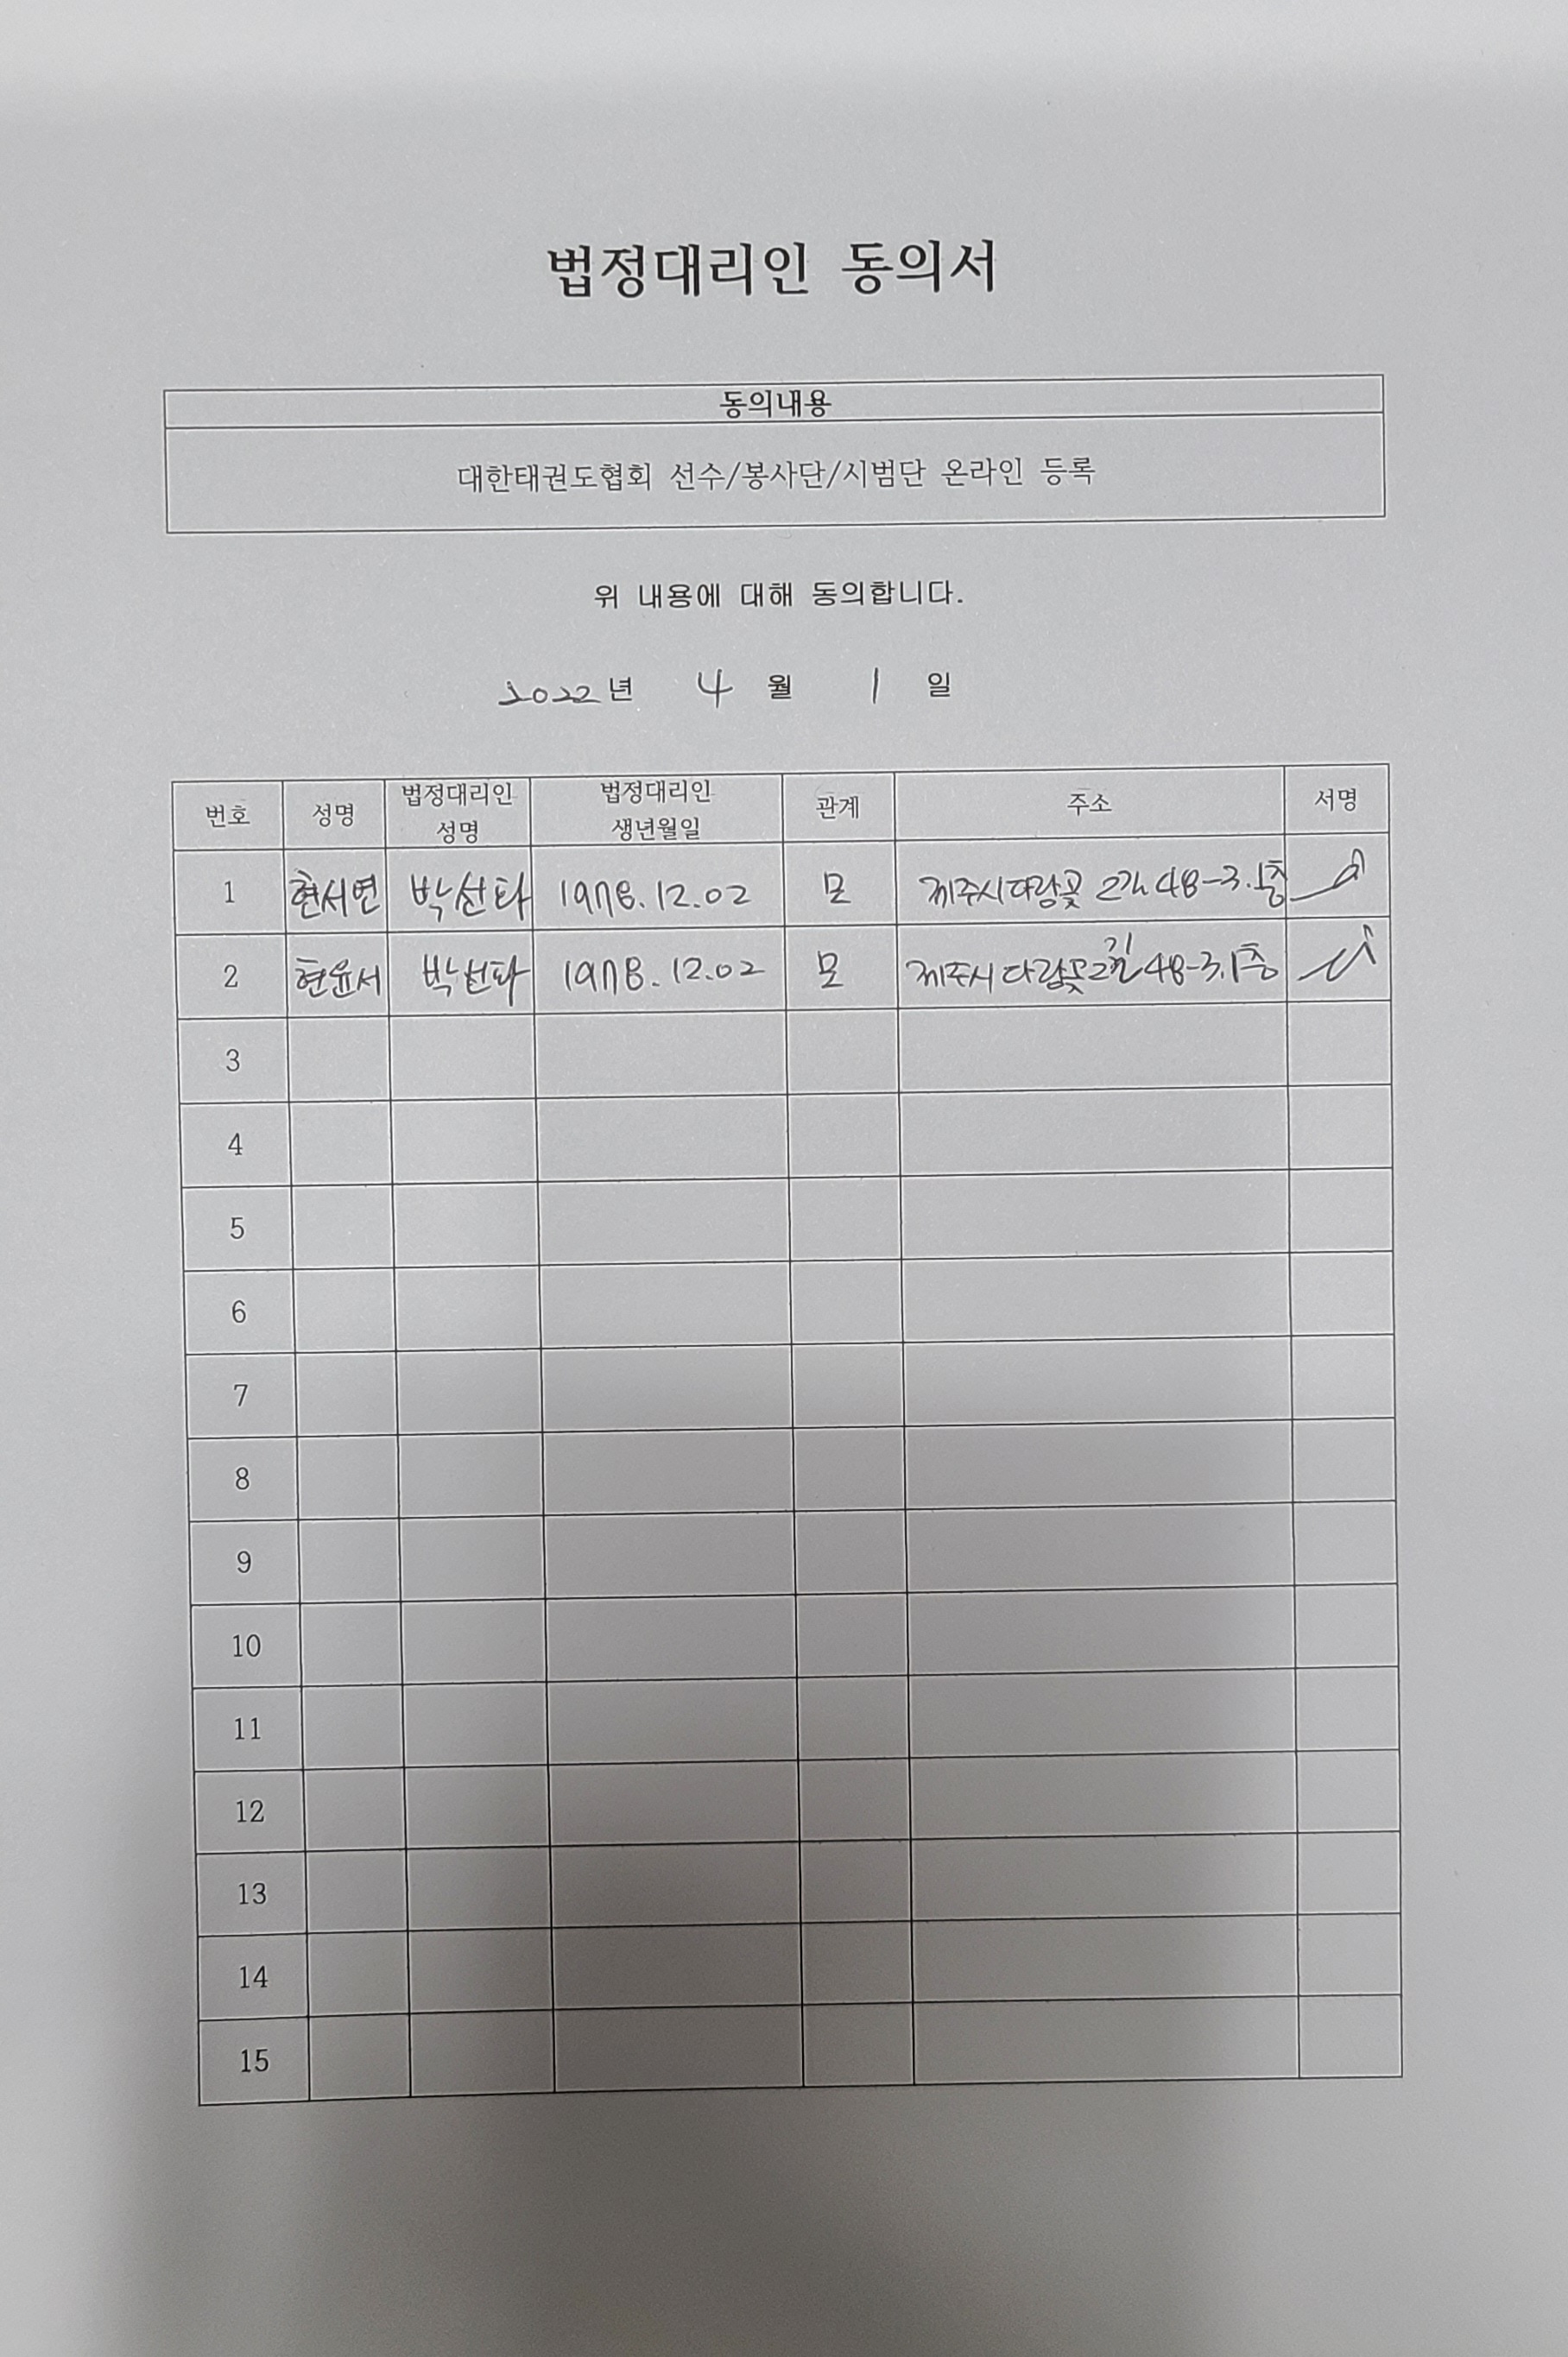 법정대리인 동의서
동의내용
대한태권도협회 선수/봉사단/시범단 온라인 등록
위 내용에 대해 동의합니다.
2022년 4월 1일
번호 성명 법정대리인 성명 법정대리인 생년월일 관계 주소 서명
1 현서연 박선타 1978.12.02 모 제주시 다랑곶 2길 48-3.1층
2 현윤서 박선타 1978.12.02 모 제주시 다랑곶2길 48-3.1층
3
4
5
6
7
8
9
10
11
12
13
14
15